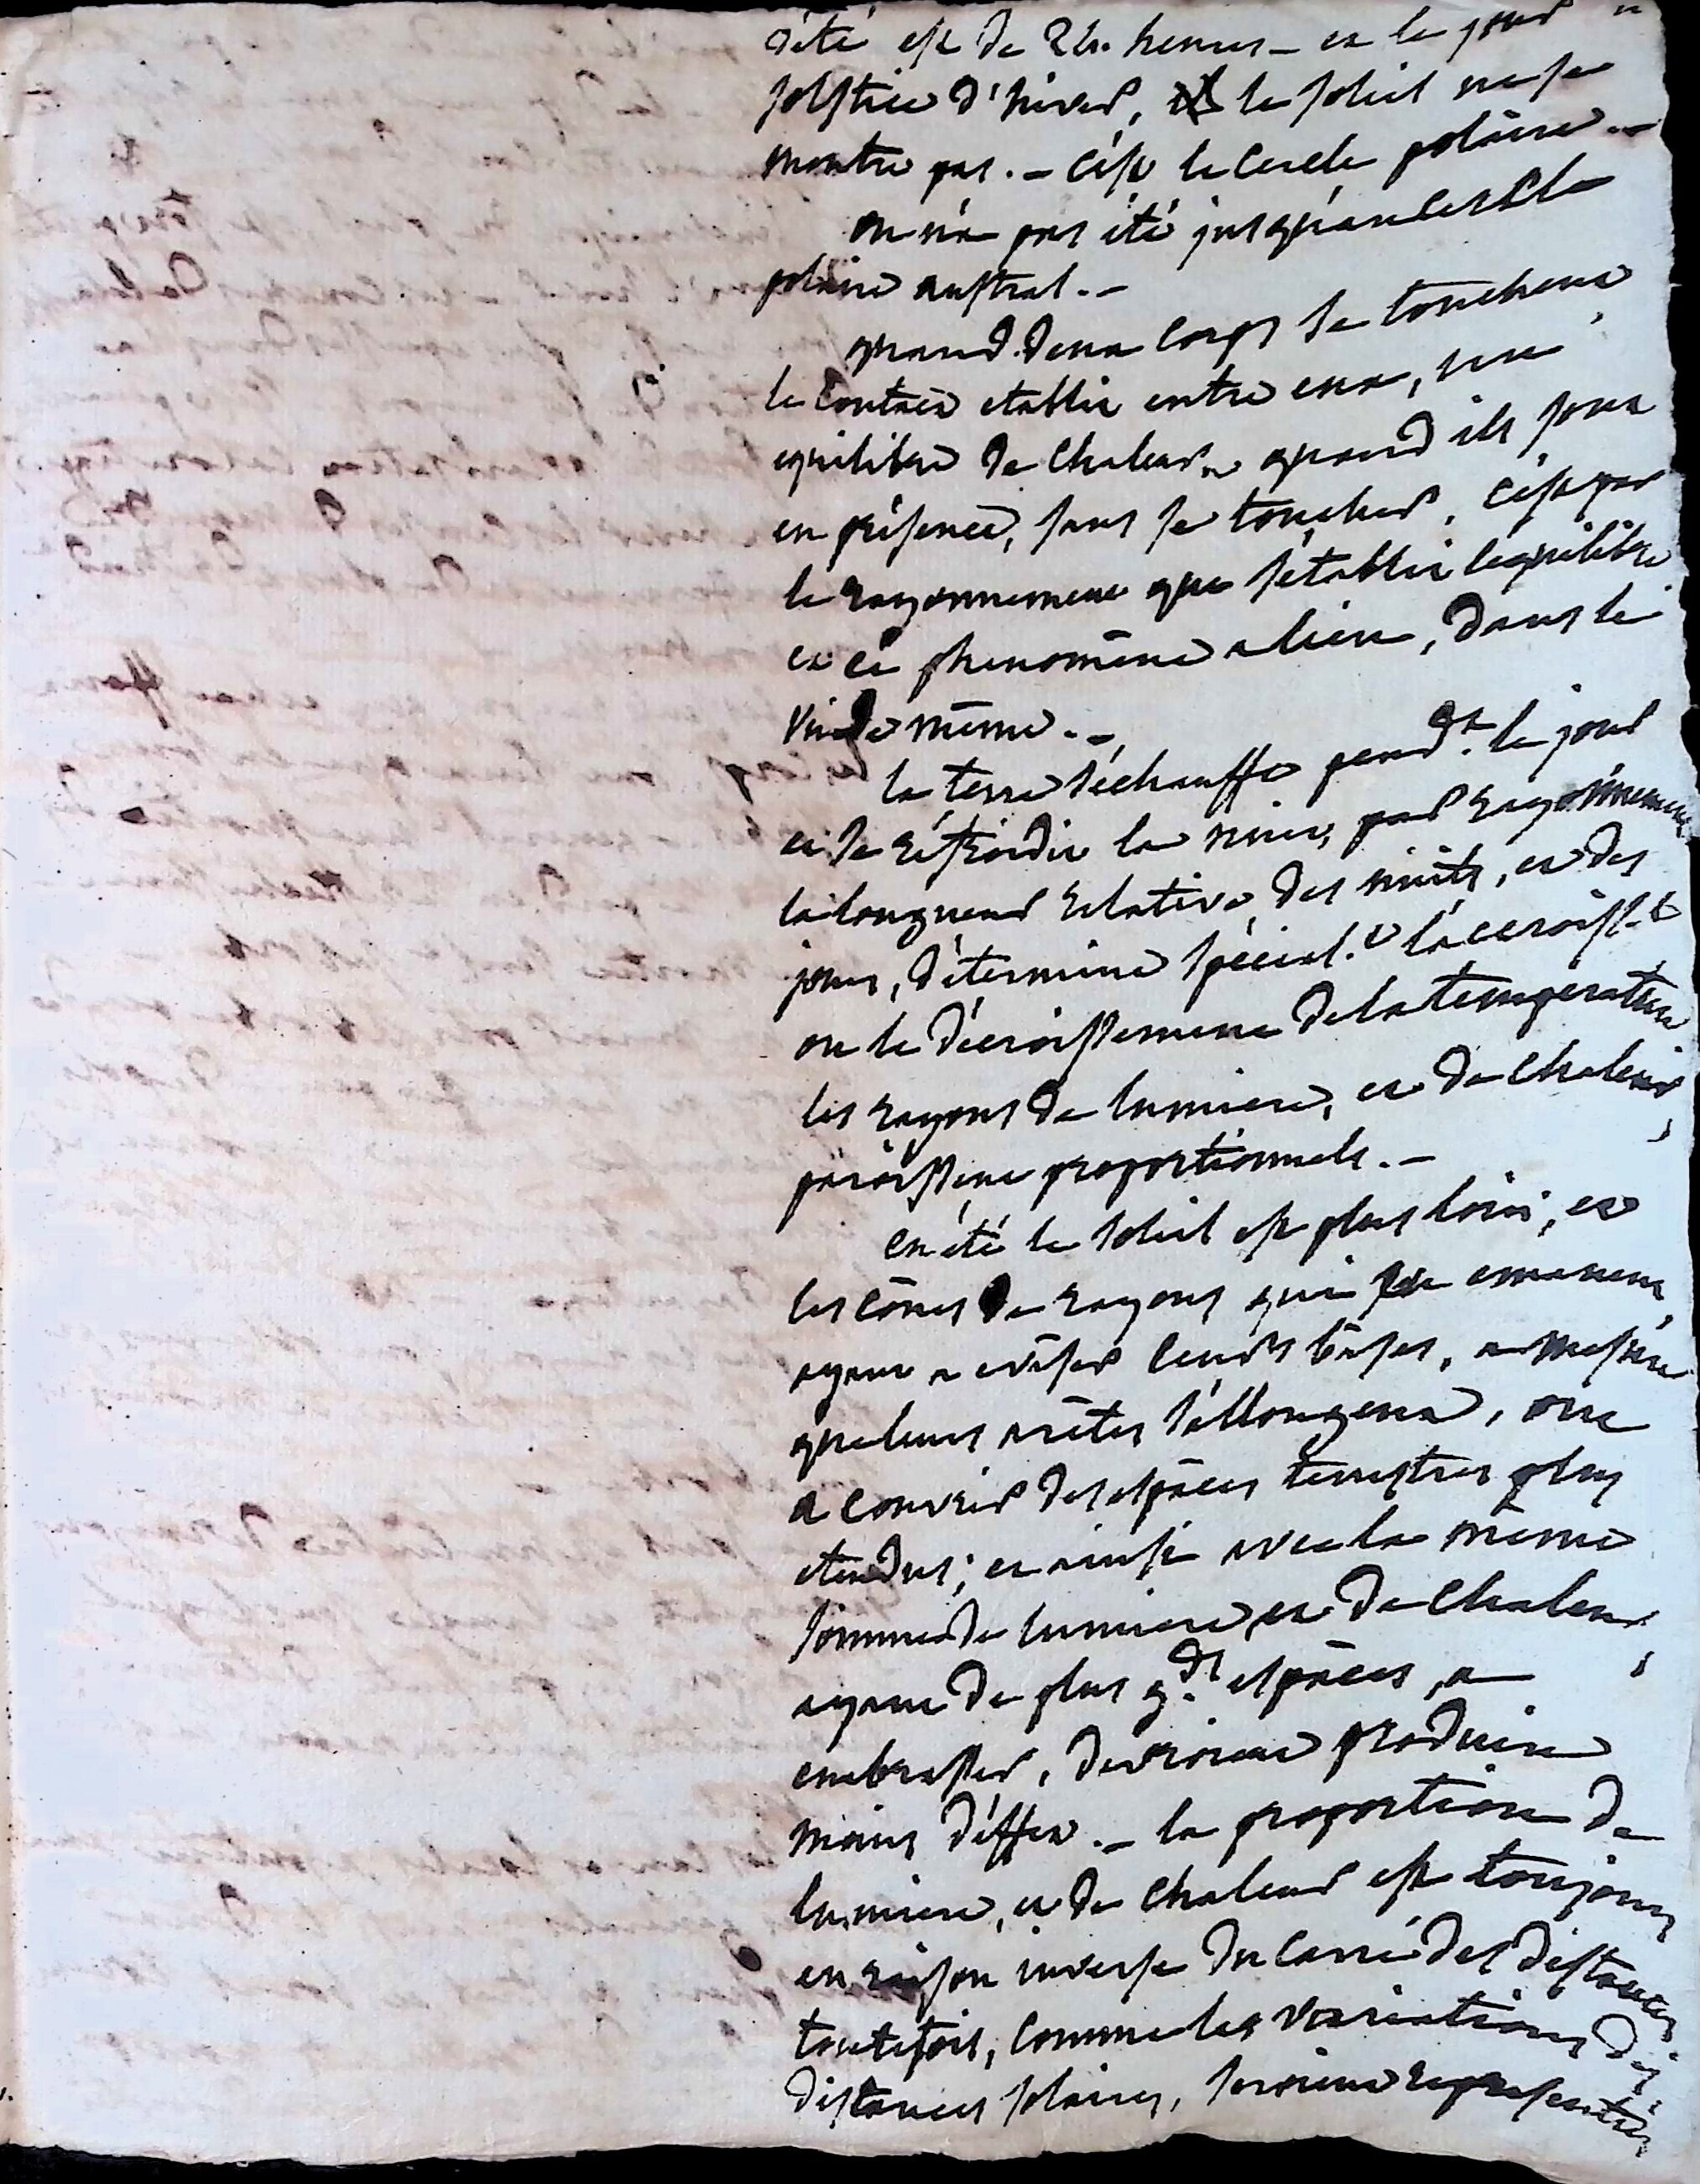 d'été est de 24. heures – et le jour
solstice d'hiver, le soleil ne se
montre pas. – c'est le cercle polaire. –
on n'a pas été jusqu'au cercle
polaire austral. –
quand deux corps se touchent
le contact etablit entre eux, un
equilibre de chaleur. quand ils sont
en présence, sans se toucher, c'est par
le rayonnement que s'établit l'equilibre
et ce phenomène a lieu, dans le
vuide même. –
la terre s'échauffe pend.t le jour
et se réfroidit la nuit, par rayonnement
la longueur relative des nuits, et des
jours, détermine spécial.t l'accroiss.t
ou le décroissement de la temperature
les rayons de lumiere, et de chaleur,
paroissent proportionnels. –
en été le soleil est plus loin, et
les cônes de rayons qui en emanent,
ayant a evaser leurs bâses, a mesure
que leurs arêtes s'allongent, ont
a couvrir des espaces terrestres plus
etendus; et ainsi avec la même
somme de lumiere et de chaleur,
ayant de plus g.ds espaces, a
embrasser, devroient produire
moins d'effet. – la proportion de
lumiere, et de chaleur est toujours
en raison inverse du carré des distances
toutefois, comme les variations des
distances solaires, seroient